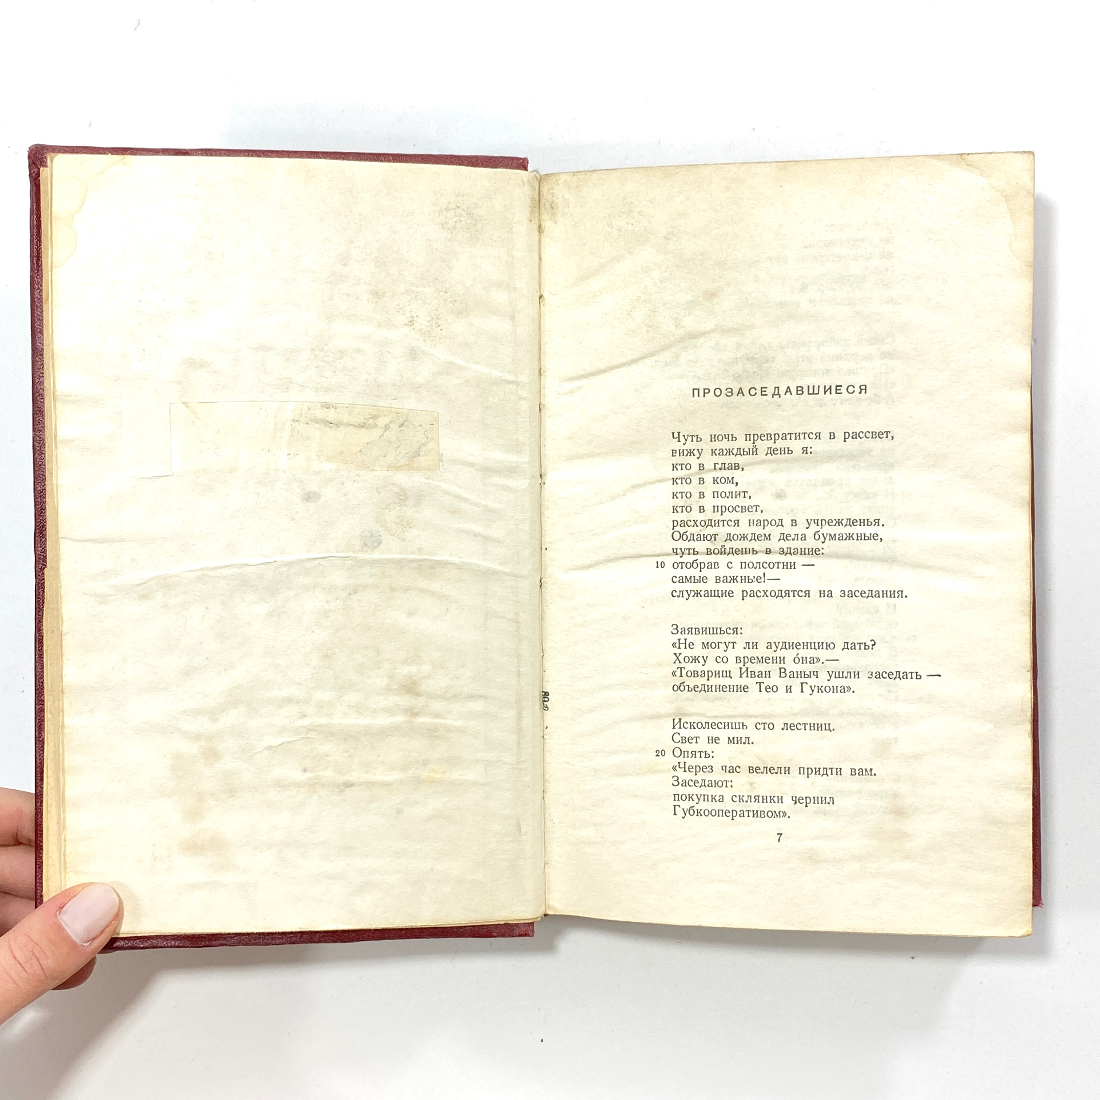 ПРОЗАСЕДАВШИЕСЯ
Чуть ночь превратится в рассвет,
вижу каждый день я:
кто в глав,
кто в ком,
кто в полит,
кто в просвет,
расходится народ в учрежденья.
Обдают дождем дела бумажные,
чуть войдешь в здание:
10 отобрав с полсотни —
самые важные!—
служащие расходятся на заседания.
Заявишься:
«Не могут ли аудиенцию дать?
Хожу со времени о́на».—
«Товарищ Иван Ваныч ушли заседать —
объединение Тео и Гукона».
Исколесишь сто лестниц.
Свет не мил.
20 Опять:
«Через час велели придти вам.
Заседают:
покупка склянки чернил
Губкооперативом».
7